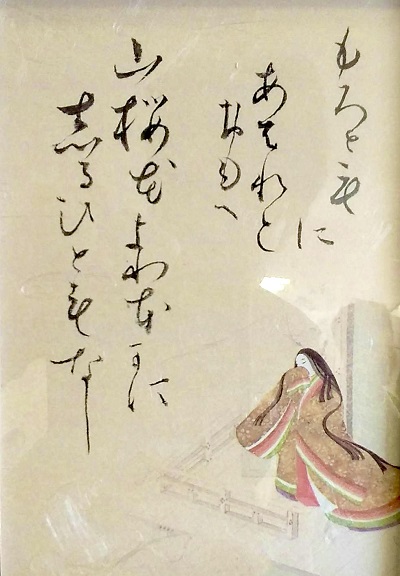 もろともに
あはれと
おもへ
山桜花よりほかに
しるひともなし